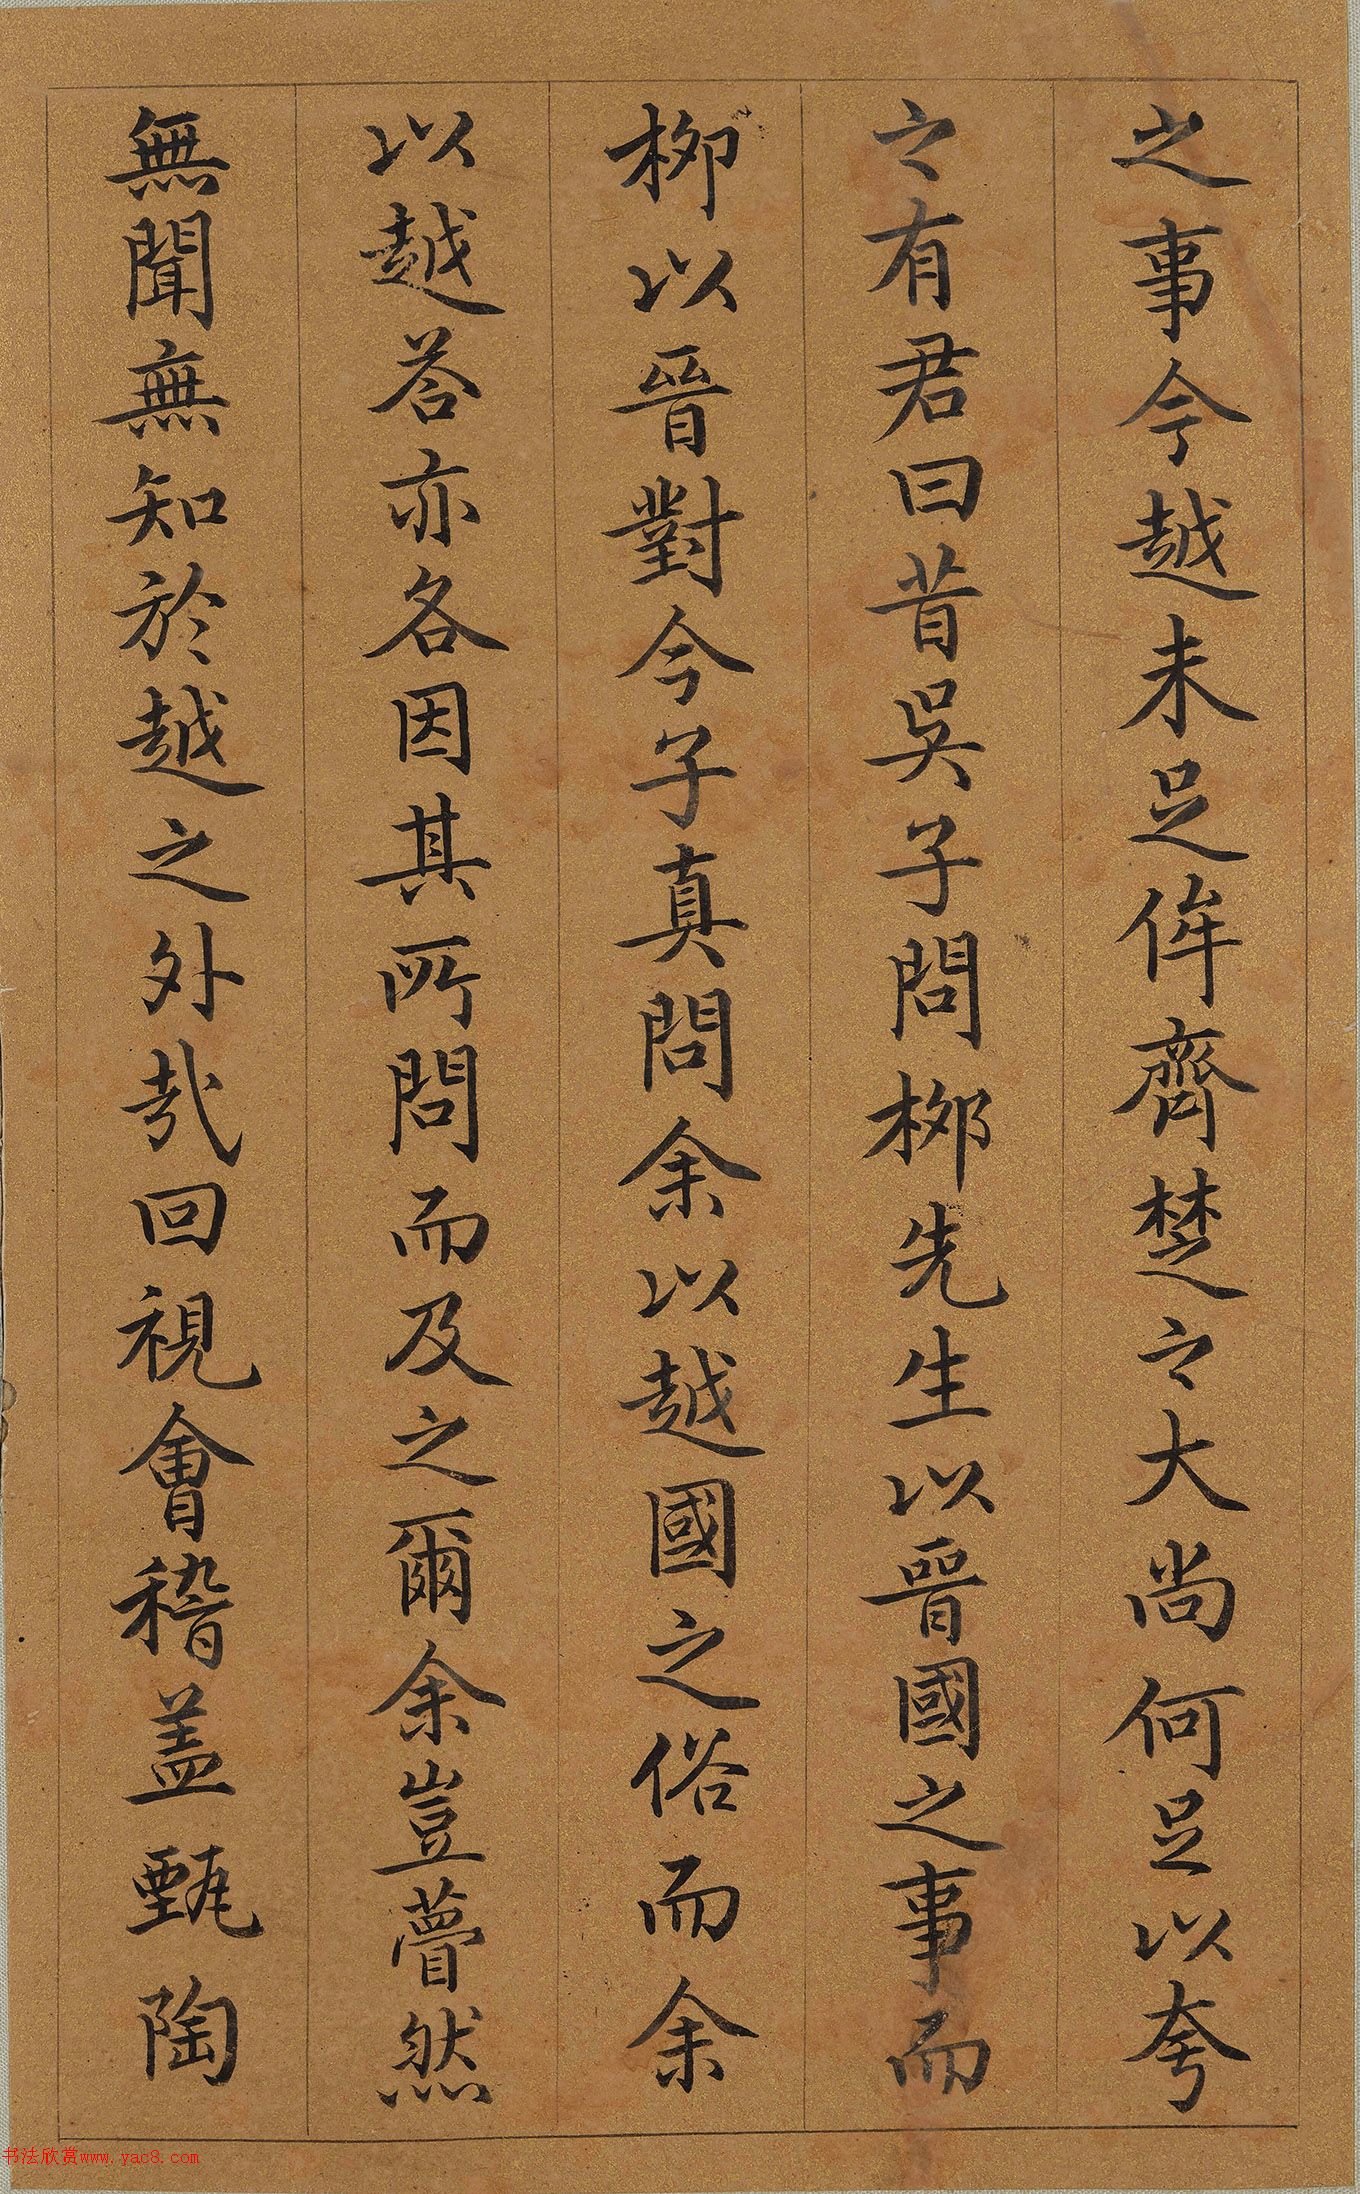 之事今越未足侔齊楚之大尚何足以夸
之有君曰昔吳子問柳先生以晉國之事而
柳以晉對今子真問余以越國之俗而余
以越荅亦各因其所問而及之爾余豈瞢然
無聞無知於越之外哉回視會稽盖甄陶
书法欣赏www.yac8.com